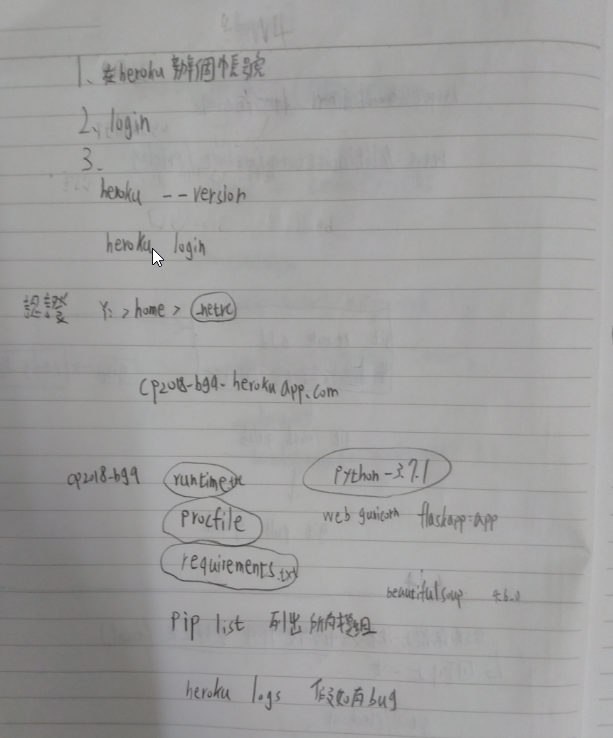 1、在heroku 辦個帳號
2、login
3.
heroku --version
heroku login
認證 Y: > home > _netrc
cp2018-bg9-herokuapp.com
cp2018-bg9 runtime.txt python-3.7.1
procfile web gunicorn flaskapp:app
requirements.txt
beautifulsoup 4.6.0
pip list 列出所有模組
heroku logs 假如有bug